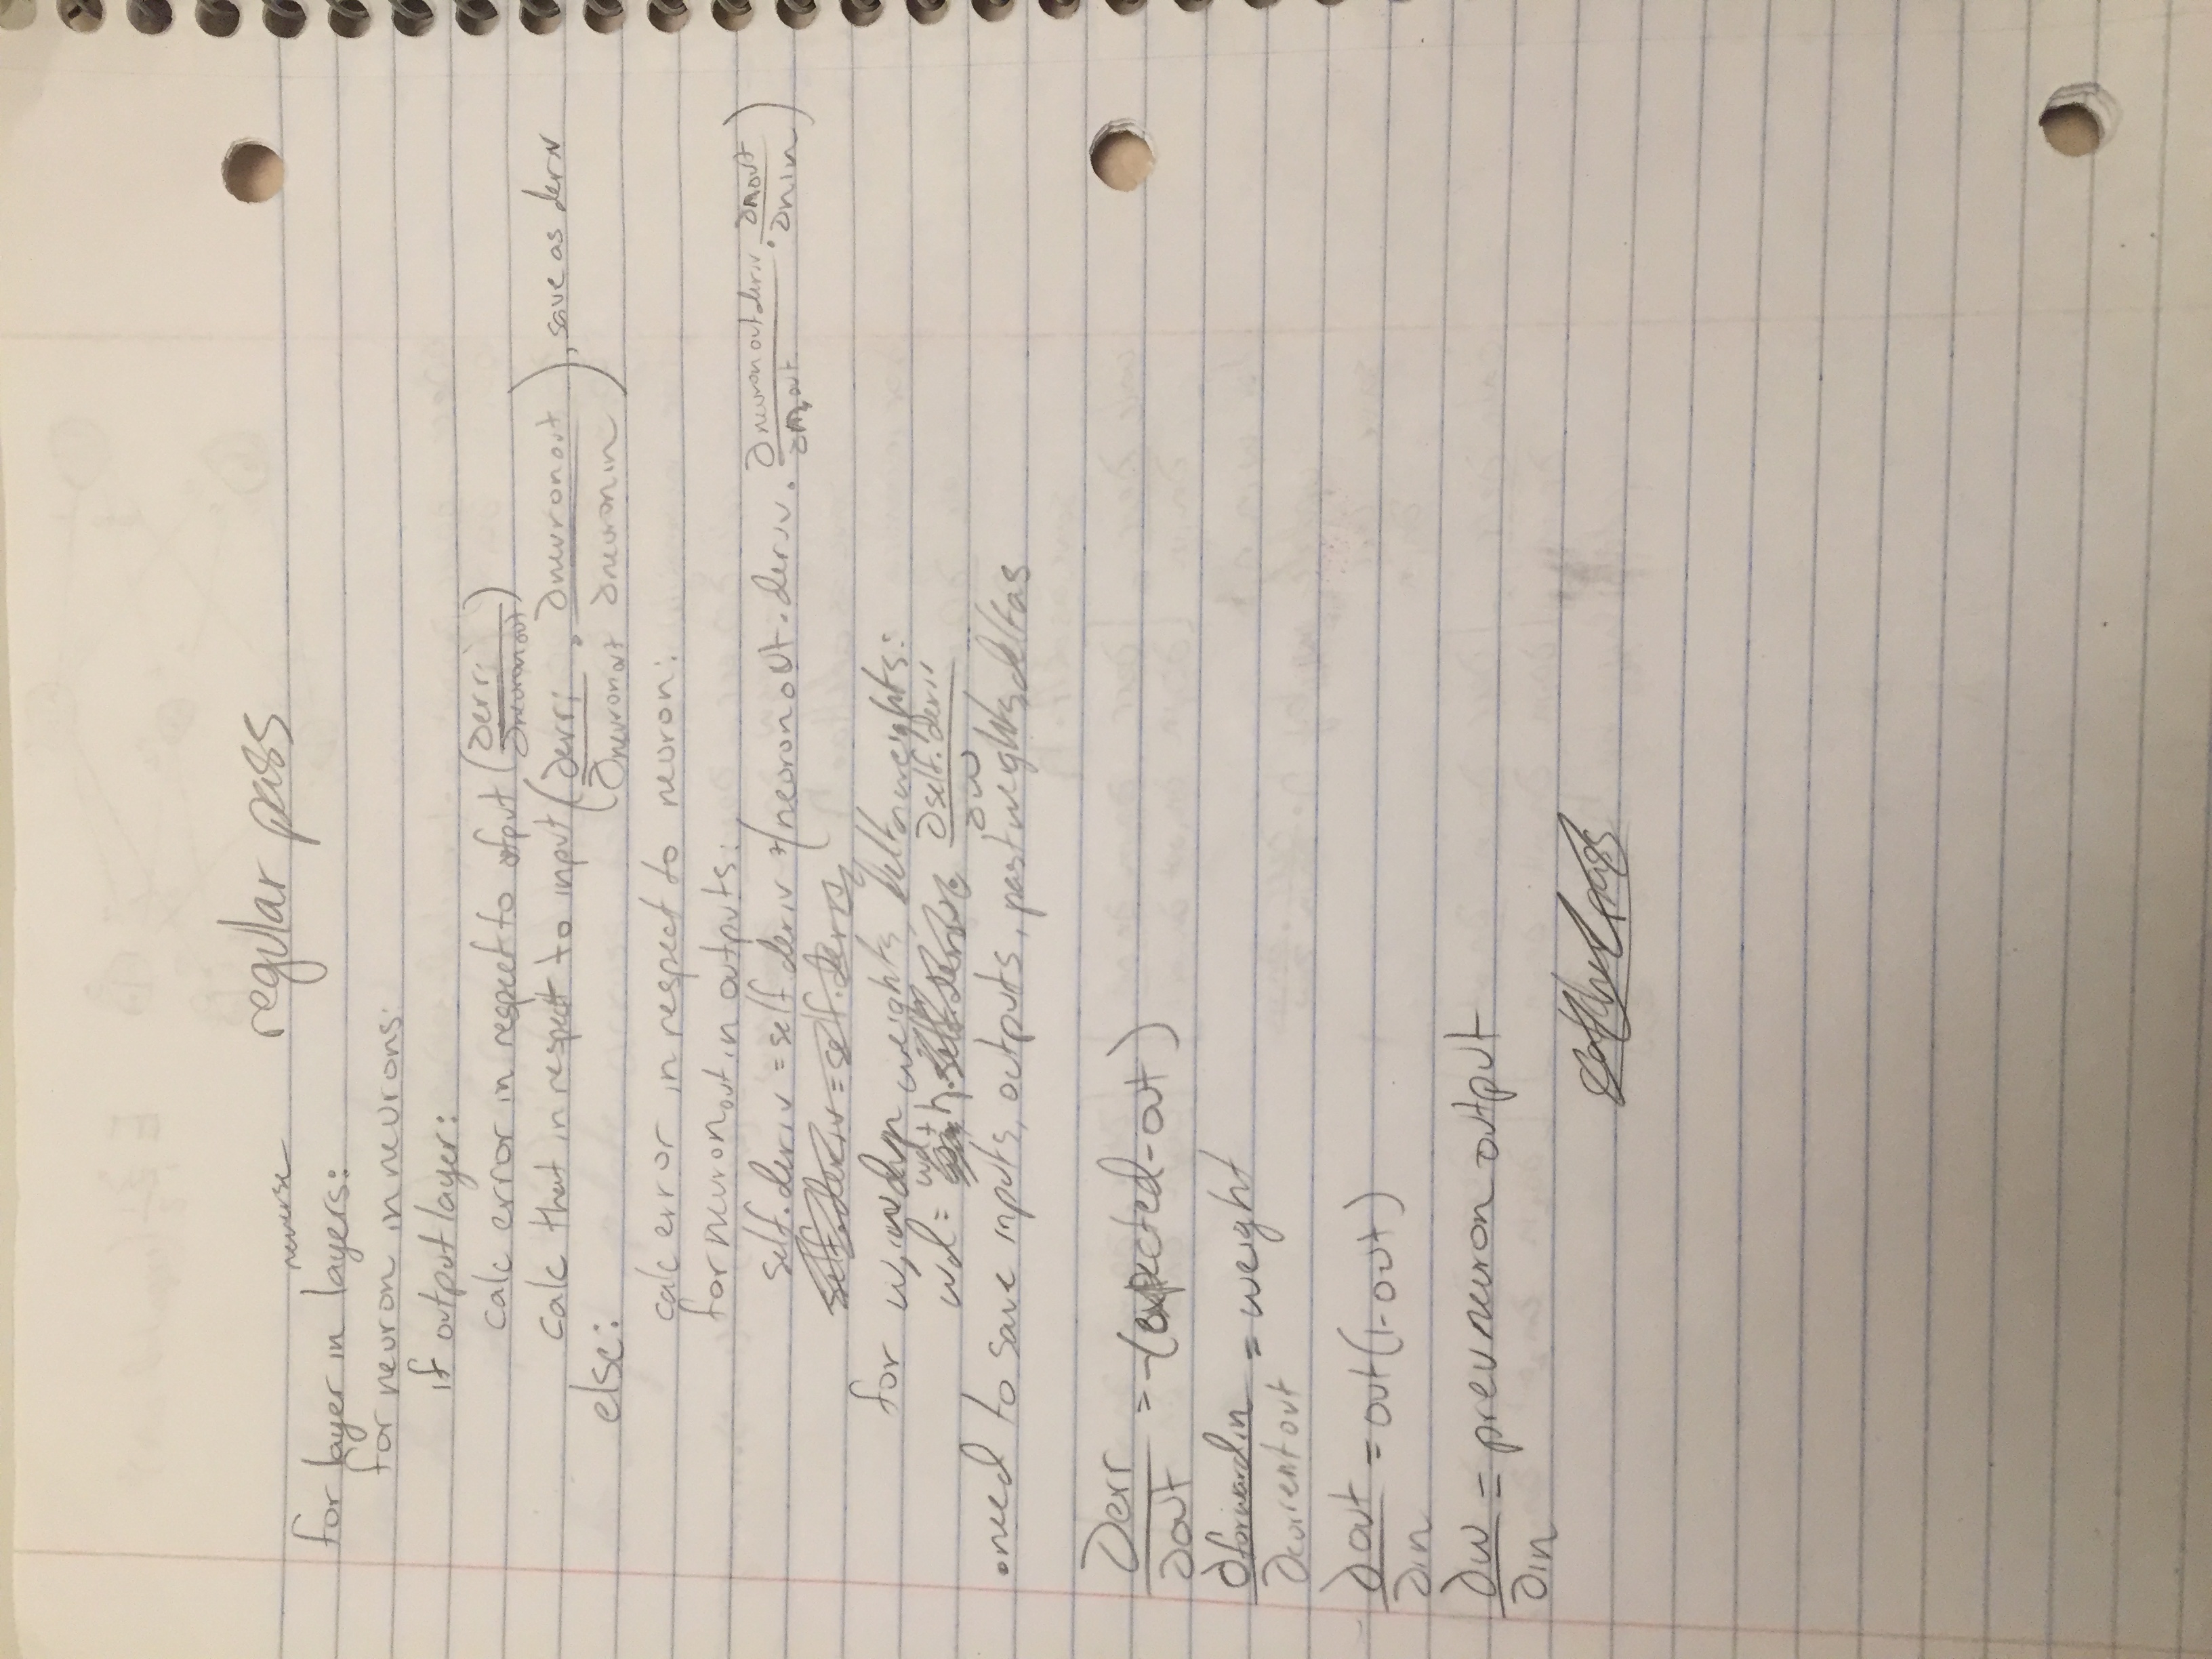 regular pass
reverse
for layer in layers:
for neuron in neurons:
if output layer:
calc error in respect to output (∂erri/∂neuronout)
calc that in respect to input (∂erri/∂neuronout · ∂neuronout/∂neuronin), save as deriv
else:
calc error in respect to neuron:
for neuronout in outputs:
self.deriv = self.deriv + (neuronout.deriv · ∂neuronoutderiv/∂nout · ∂nout/∂nin)
self.deriv = self.deriv
for w, wd in weights, deltaweights:
wd = wd + η · ∂self.deriv/∂w
• need to save inputs, outputs, past weights, deltas
∂err/∂out = -(expected - out)
∂forwardin/∂currentout = weight
∂out/∂in = out(1-out)
∂w/∂in = prev neuron output
pass